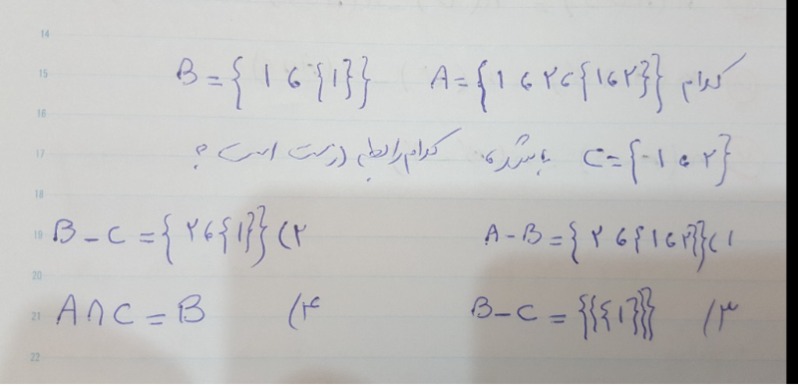 کدام A = {1 , ۲ , {1 , ۲}} B = {1 , {1}}
C = {1 , ۲} باشد، کدام رابطه درست است ؟
1) A - B = {۲ , {1 , ۲}} ۲) B - C = {۲ , {1}}
۳) B - C = {{{1}}} ۴) A ∩ C = B
14
15
16
17
18
19
20
21
22